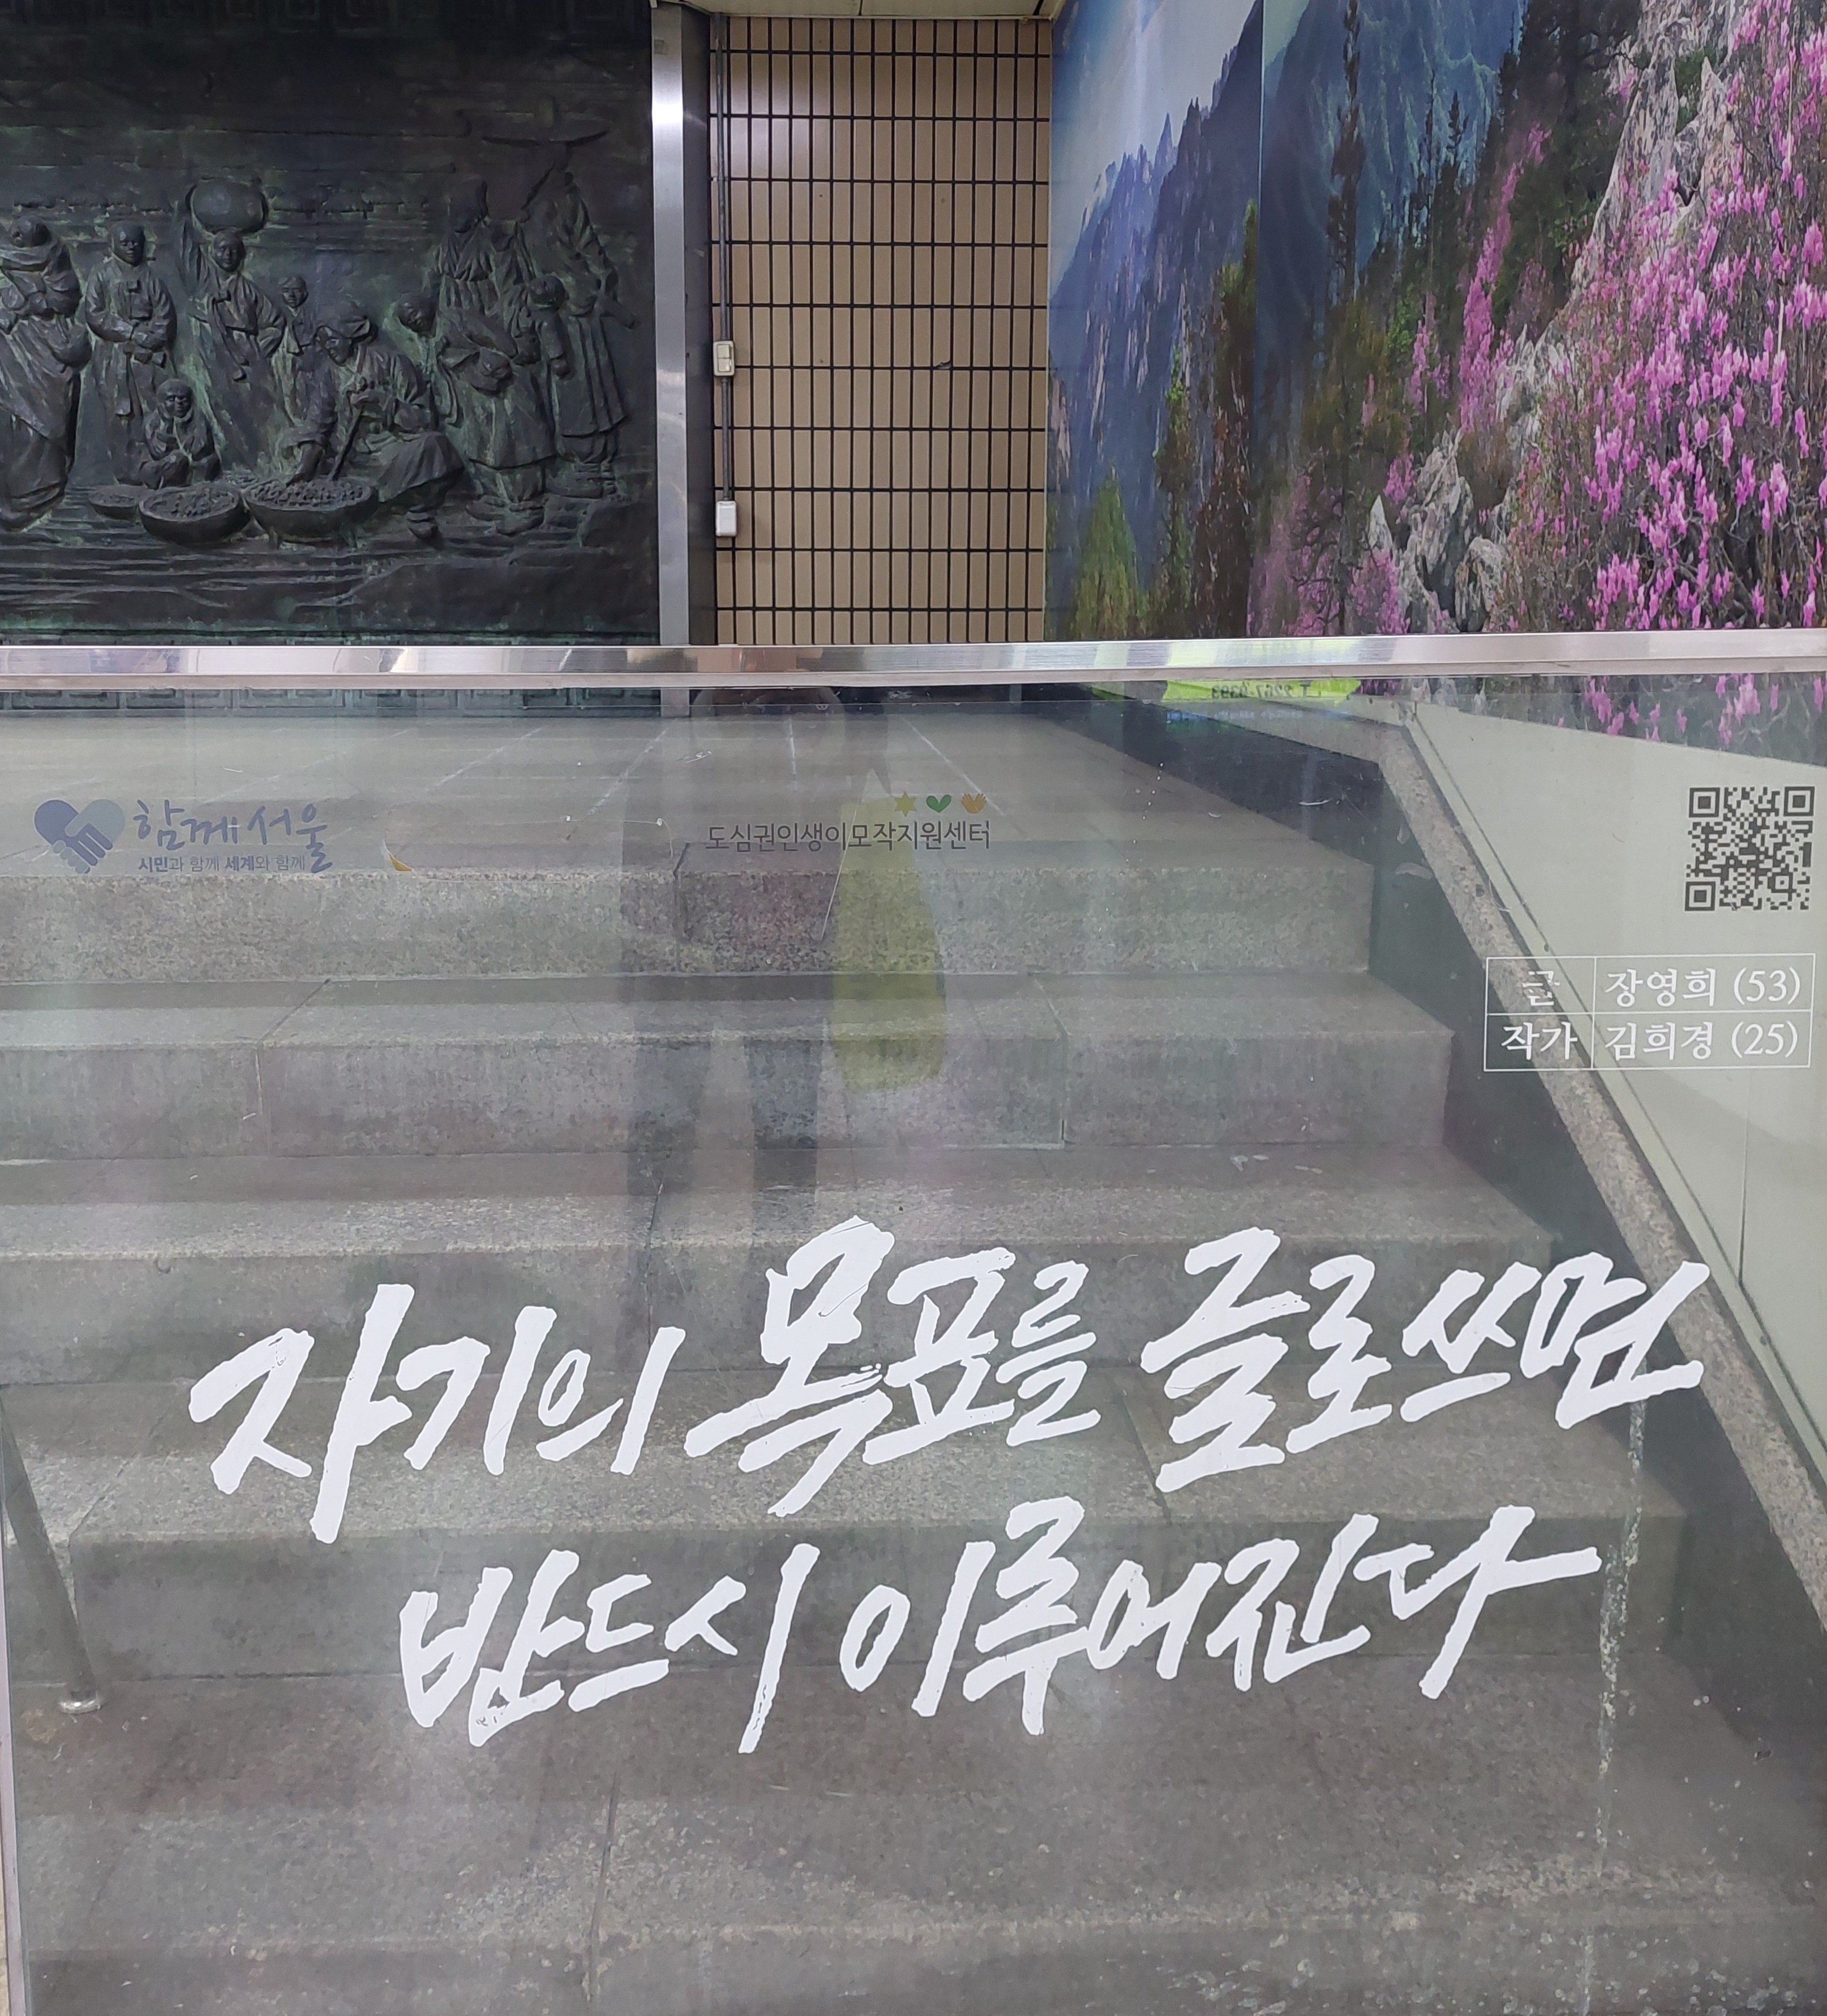 함께 서울
시민과 함께 세계와 함께
도심권인생이모작지원센터
글 장영희 (53)
작가 김희경 (25)
자기의 목표를 글로 쓰면
반드시 이루어진다